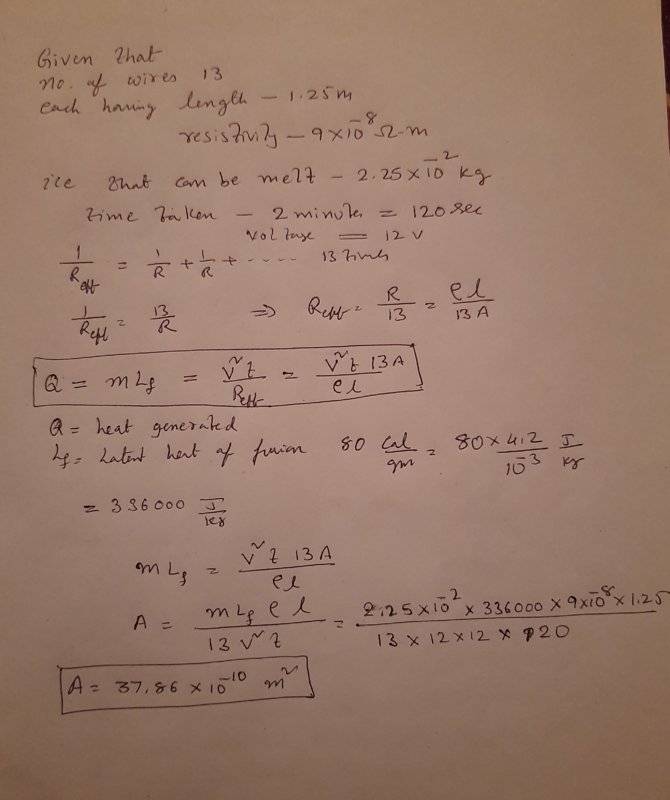 Given that
no. of wires 13
each having length - 1.25m
resistivity - 9×10⁻⁸ Ω-m
ice that can be melt - 2.25×10⁻² kg
time taken - 2 minutes = 120 sec
voltage = 12 V
1/R_eff = 1/R + 1/R + ..... 13 times
1/R_eff = 13/R ⇒ R_eff = R/13 = ρl/13A
Q = mL_f = V²t/R_eff = V²t 13A/ρl
Q = heat generated
L_f = Latent heat of fusion 80 cal/gm = 80×4.2/10⁻³ J/kg
= 336000 J/kg
mL_f = V²t 13A/ρl
A = mL_f ρ l/13 V²t = 2.25×10⁻² × 336000 × 9×10⁻⁸ × 1.25/13 × 12 × 12 × 120
A = 37.86 × 10⁻¹⁰ m²